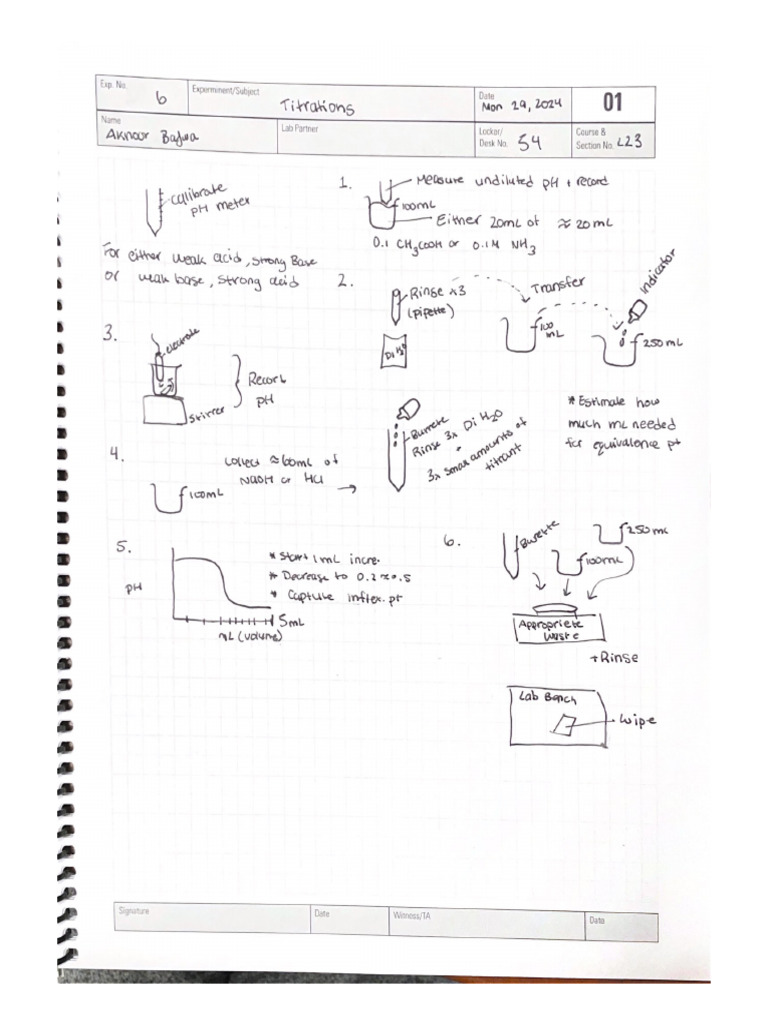 Exp. No.
6
Experiment/Subject
Titrations
Date
Mon 29, 2024
01
Name
Aknoor Bajwa
Lab Partner
Locker/
Desk No.
54
Course &
Section No.
L23
Calibrate
pH meter
For either weak acid, strong Base
or weak base, strong acid
1.
Measure undiluted pH + record
100mL
Either 20mL of ≈ 20 mL
0.1 CH3COOH or 0.1M NH3
2.
Rinse x3
(pipette)
Di H2O
Transfer
100
mL
Indicator
250 mL
3.
electrode
Stirrer
Record
pH
Burette
Rinse 3x Di H2O
3x small amounts of
titrant
* Estimate how
much mL needed
for equivalence pt
4.
Collect ≈ 60mL of
NaOH or HCl
100mL
5.
pH
* Start 1 mL incre.
* Decrease to 0.2 ≈ 0.5
* Capture inflex. pt
5mL
mL (volume)
6.
Burette
250mL
100mL
Appropriate
Waste
+ Rinse
Lab Bench
Wipe
Signature
Date
Witness/TA
Date